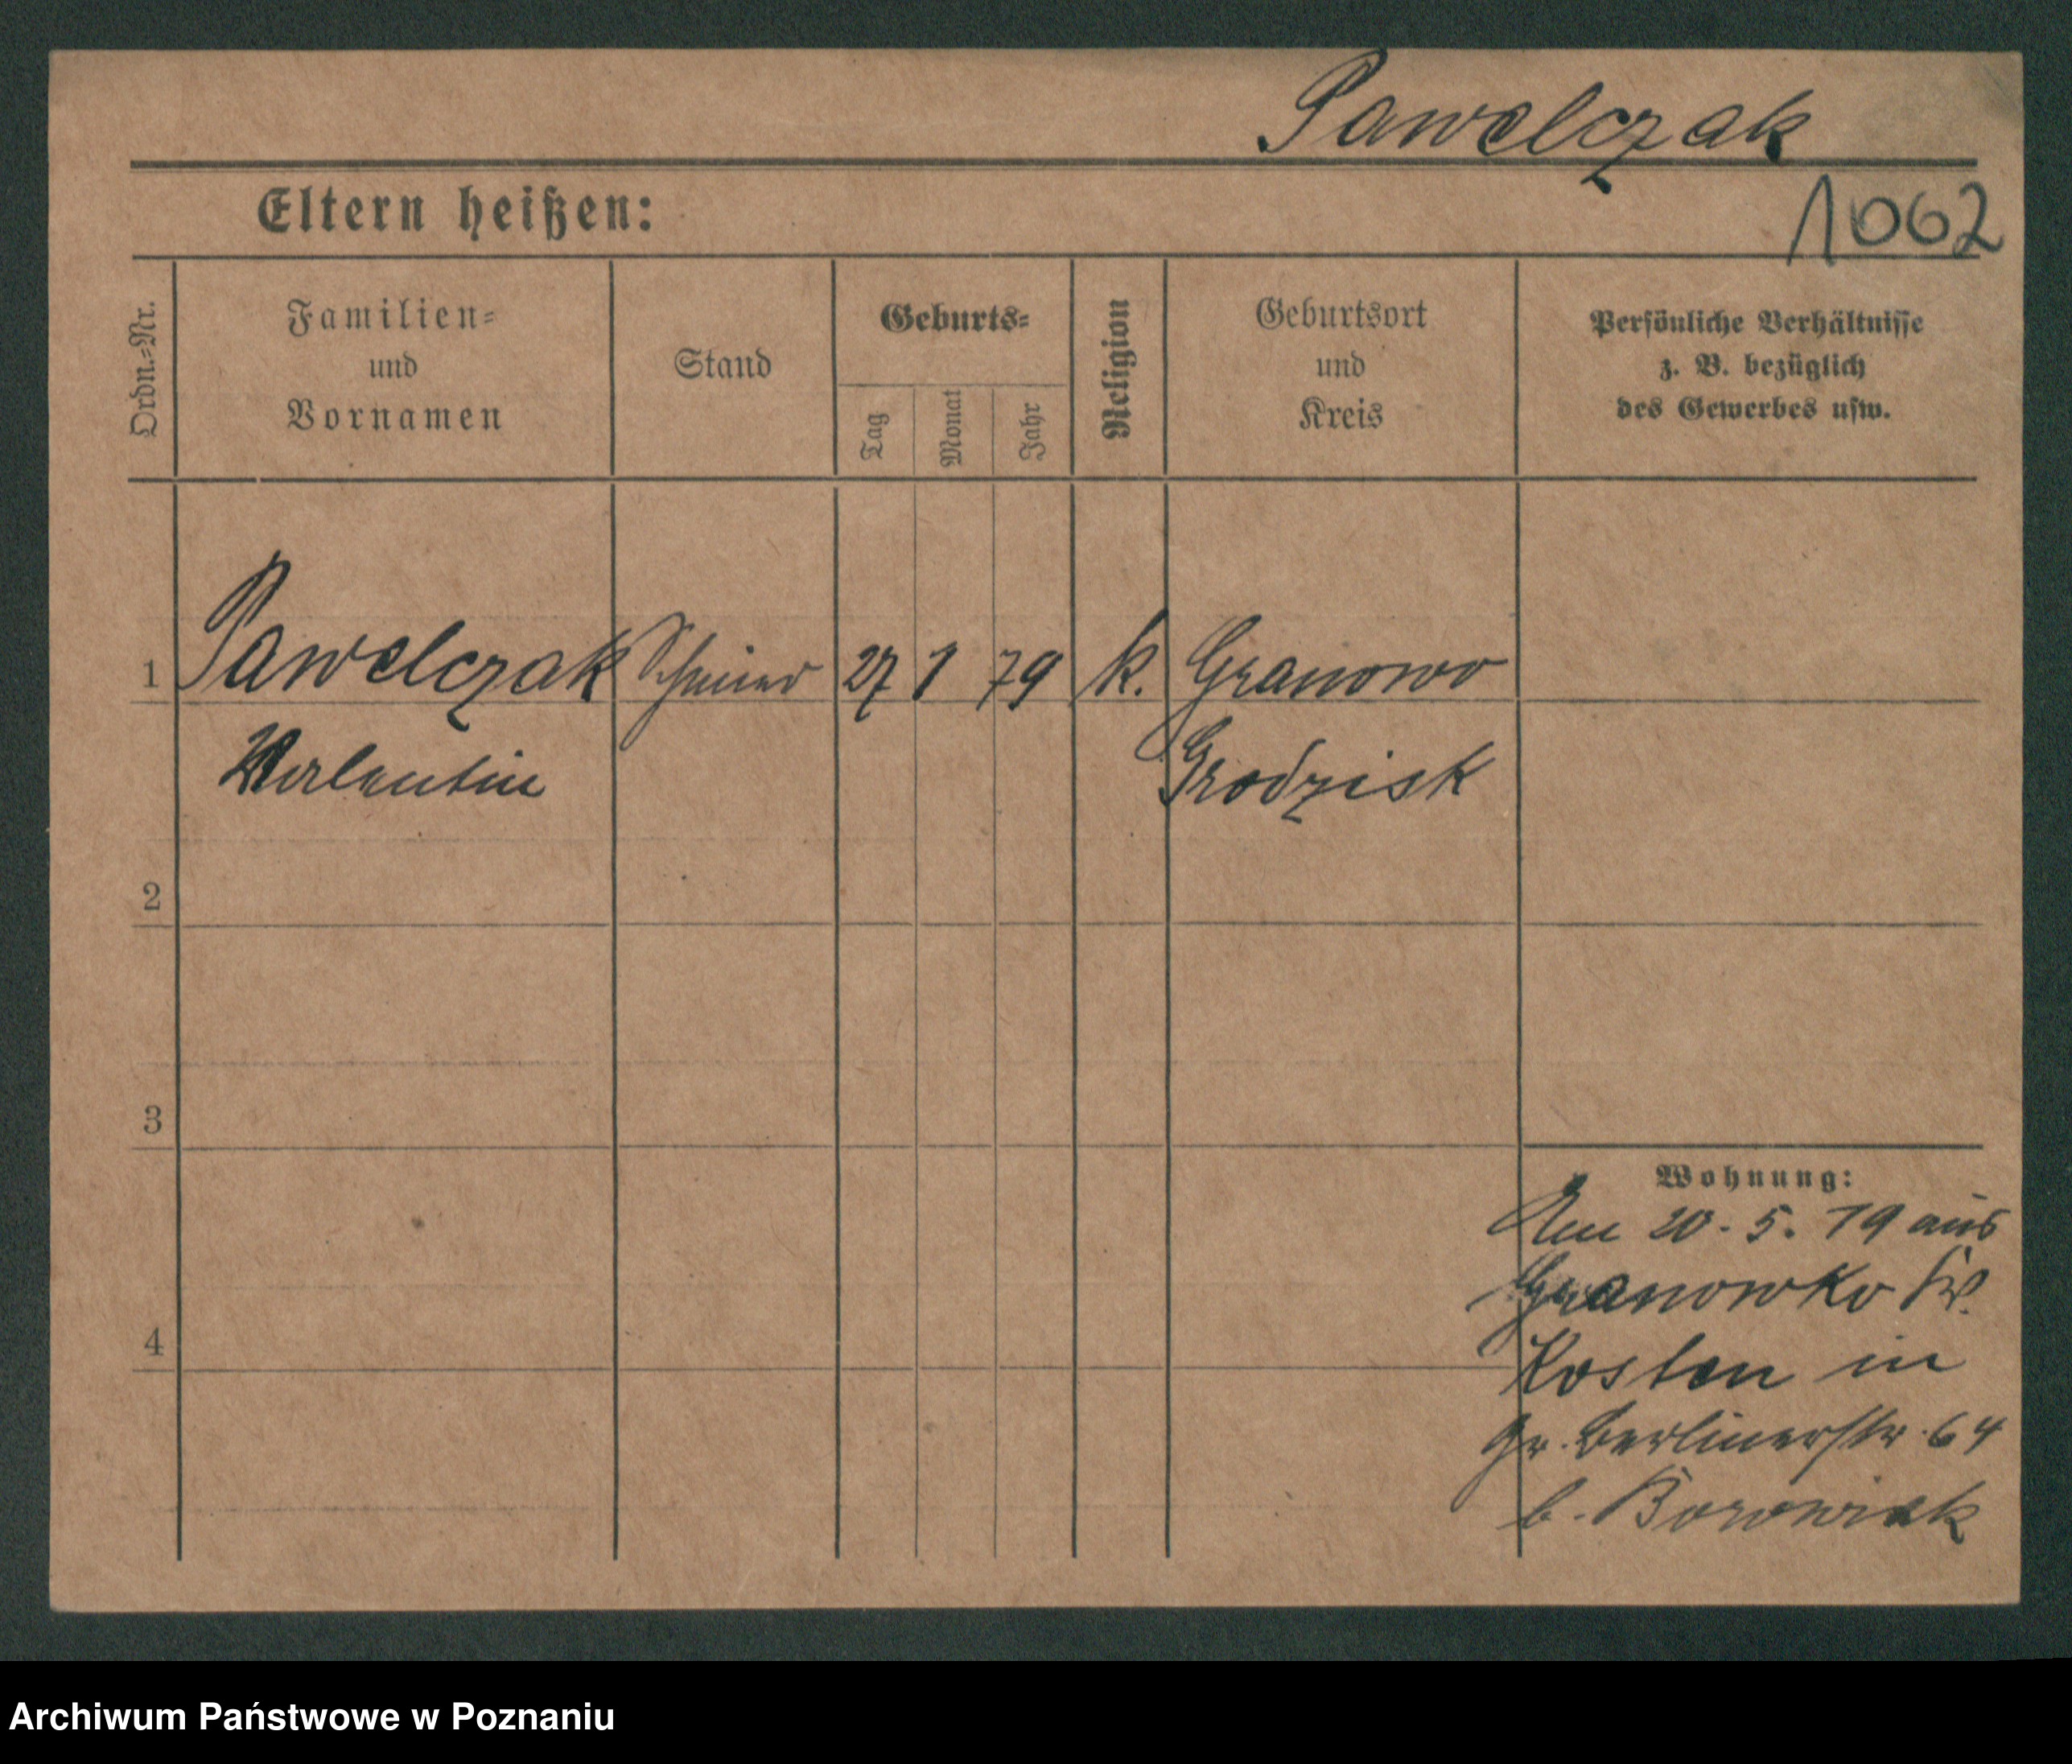 Pawelczak
Eltern heißen:
1062
Ordn.=Nr.
Familien=
und
Vornamen
Stand
Geburts=
Tag
Monat
Jahr
Religion
Geburtsort
und
Kreis
Persönliche Verhältnisse
z. B. bezüglich
des Gewerbes usw.
1 Pawelczak 27 1 79 k. Granowo
Valentin Grodzisk
2
3
Wohnung:
Am 20. 5. 19 aus
Granowko
4
Kosten in
Gr. Berlinerstr. 64
b. Borowiak
Archiwum Państwowe w Poznaniu